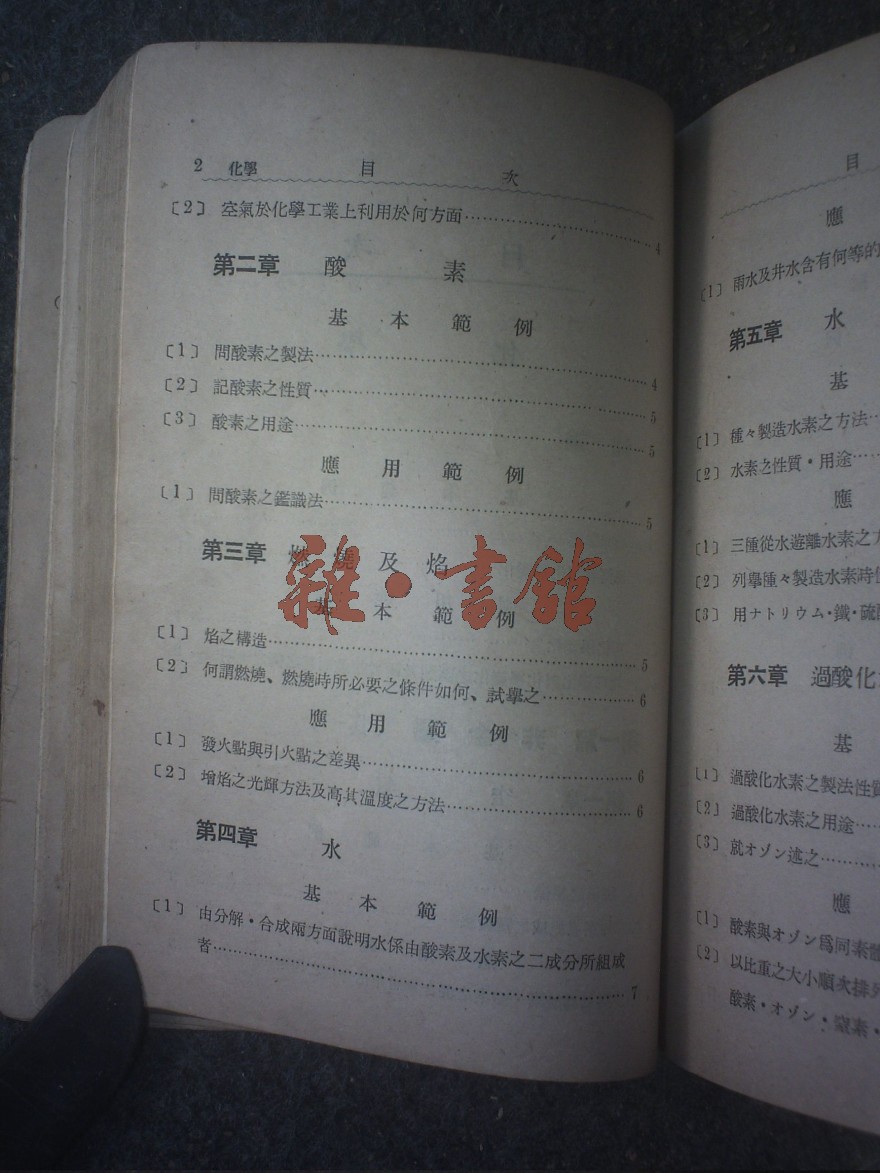 2 化學 目 次
〔2〕 空氣於化學工業上利用於何方面……………………4
第二章 酸 素
基 本 範 例
〔1〕 問酸素之製法……………………4
〔2〕 記酸素之性質……………………5
〔3〕 酸素之用途……………………5
應 用 範 例
〔1〕 問酸素之鑑識法……………………5
第三章 燃 燒 及 焰
基 本 範 例
〔1〕 焰之構造……………………5
〔2〕 何謂燃燒、燃燒時所必要之條件如何、試擧之……………6
應 用 範 例
〔1〕 發火點與引火點之差異……………………6
〔2〕 增焰之光輝方法及高其溫度之方法……………………6
第四章 水
基 本 範 例
〔1〕 由分解・合成兩方面說明水係由酸素及水素之二成分所組成
者……………………7
雜・書館
目
應
〔1〕 雨水及井水含有何等的
第五章 水
基
〔1〕 種々製造水素之方法…
〔2〕 水素之性質・用途……
應
〔1〕 三種從水遊離水素之
〔2〕 列擧種々製造水素時
〔3〕 用ナトリウム・鐵・硫
第六章 過酸化
基
〔1〕 過酸化水素之製法性質
〔2〕 過酸化水素之用途……
〔3〕 就オゾン述之…………
應
〔1〕 酸素與オゾン爲同素
〔2〕 以比重之大小順次排列
酸素・オゾン・窒素・